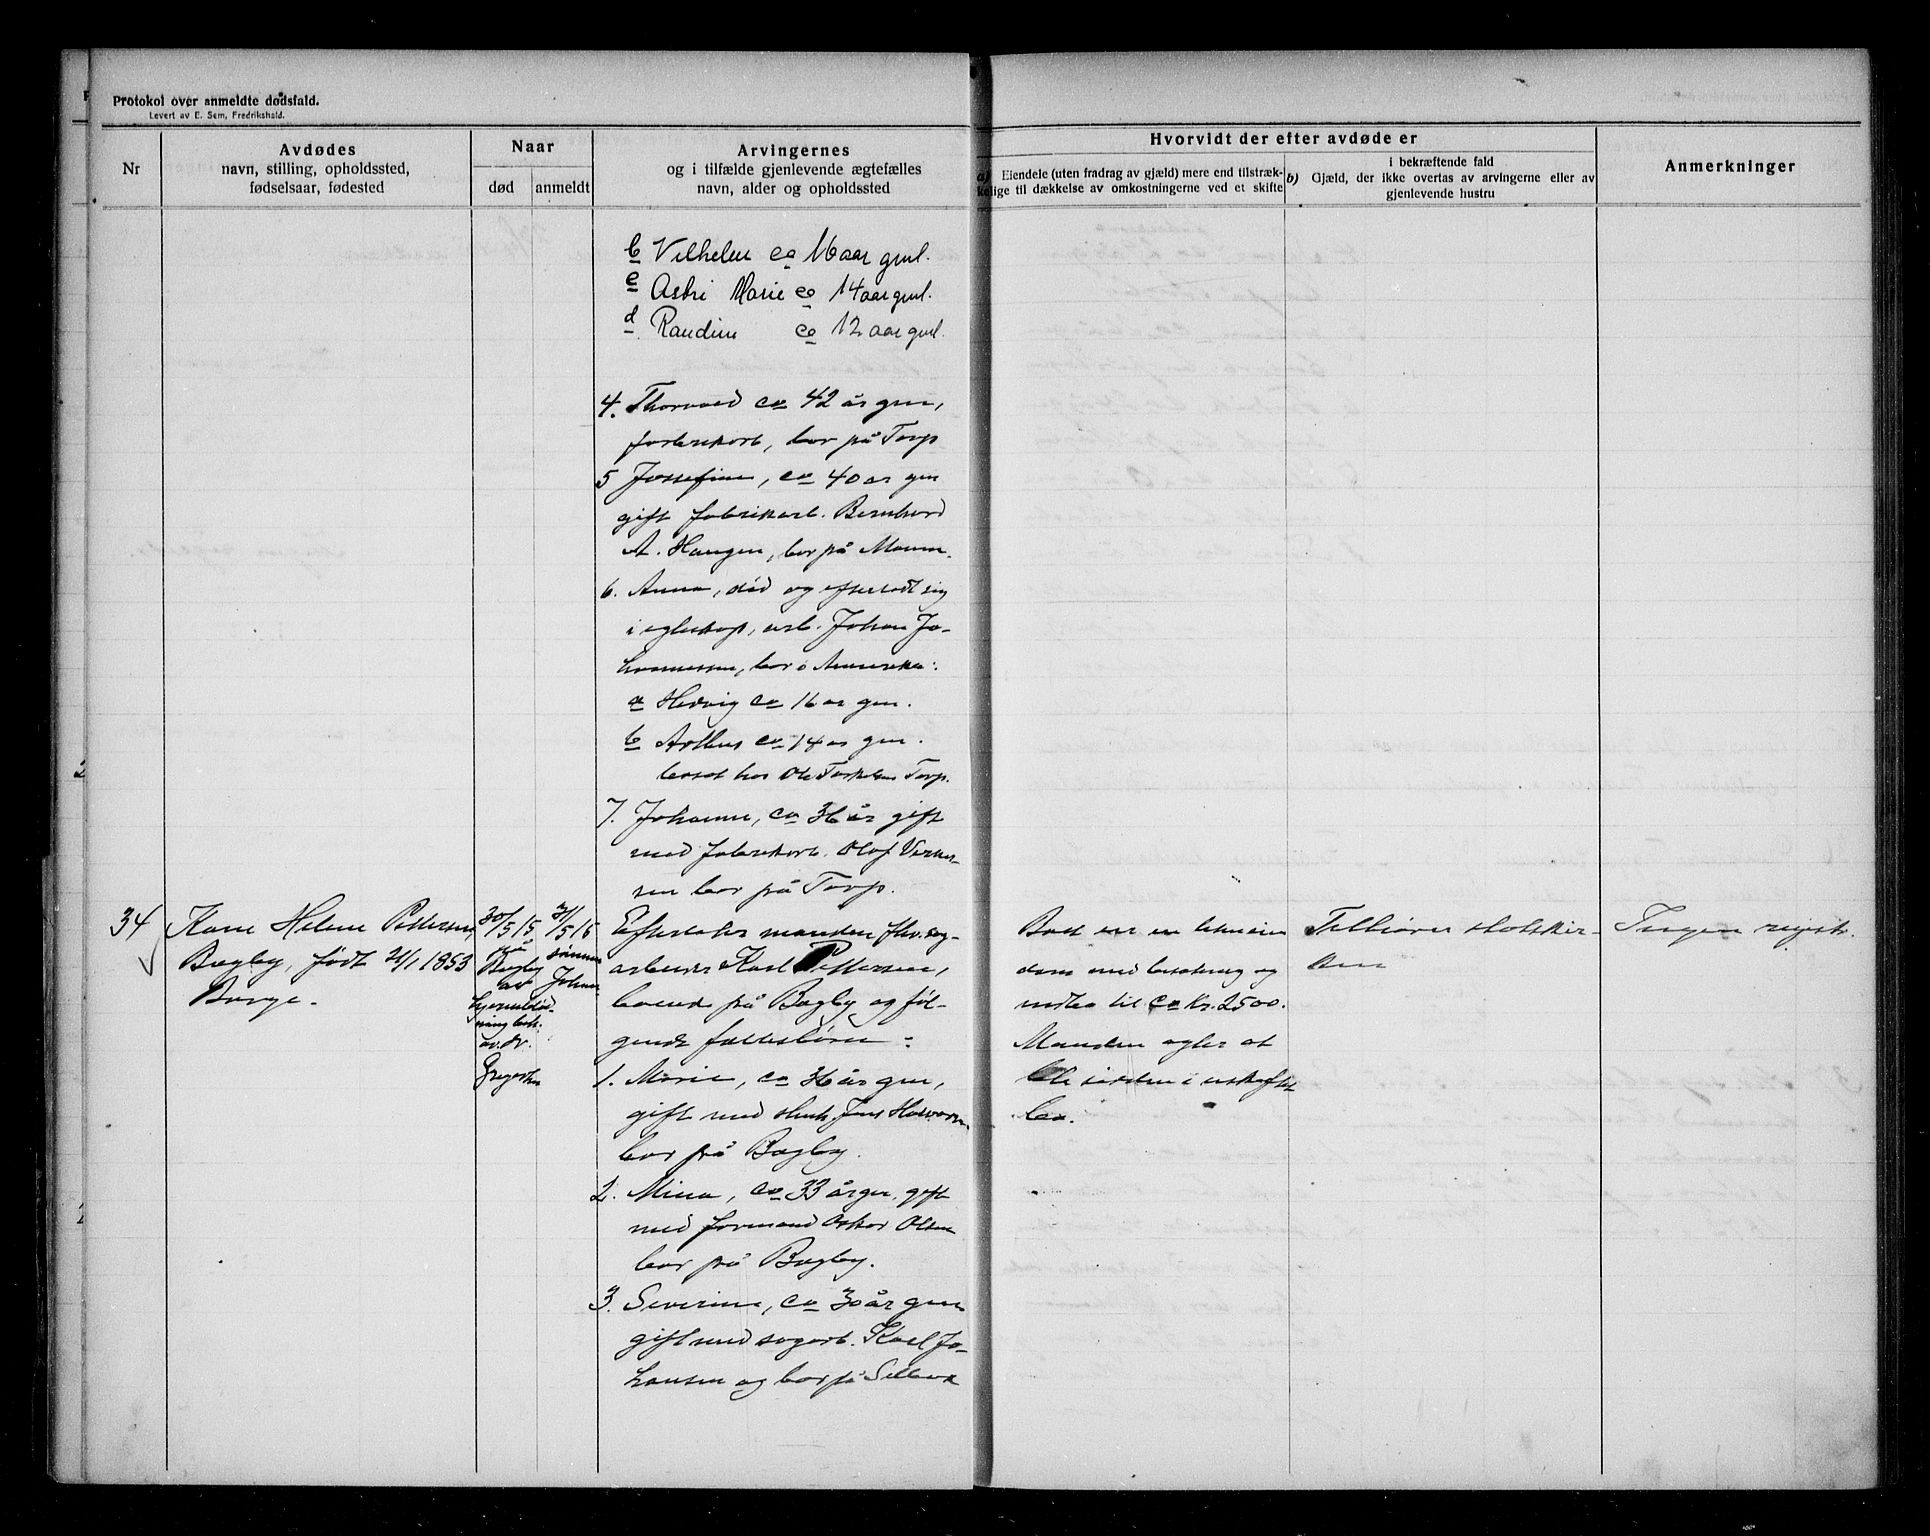 Protokol over anmeldte dødsfald.
Levert av E. Sem, Fredrikshald.
Nr
Avdødes
navn, stilling, opholdssted,
fødselsaar, fødested
Naar
død
anmeldt
Arvingernes
og i tilfælde gjenlevende ægtefælles
navn, alder og opholdssted
Hvorvidt der efter avdøde er
a) Eiendele (uten fradrag av gjæld) mere end tilstræk-
kelige til dækkelse av omkostningerne ved et skifte
i bekræftende fald
b) Gjæld, der ikke overtas av arvingerne eller av
gjenlevende hustru
Anmerkninger
b Vilhelm ca 16 aar gml.
c Astri Marie ca 14 aar gml.
d. Randine ca 12 aar gml.
4. Thorvald ca 42 år gm,
bor på Torp
5 Josefine, ca 40 år gm
gift fabrikarb. Bernhard
A. Haugen, bor på Moum.
6. Anna, død og efterladt sig
i egteskap, arb. Johan Jo-
hannessen, bor i Amerika:
a Hedvig ca 16 år gm.
b Arthur ca 14 år gm.
hos Ole Torkelsen Torp.
7. Johanne, ca 36 år gift
med fabrikarb. Olaf
sen bor på Torp.
34
Karen Helene Pettersen,
Bagby, født 21/1 1853
Borge.
30/5 15
på
Bagby
av
hjerneblød-
ning
av dr.
31/5 15
sønnen
Johan
Efterlater manden fhv. sag-
arbeider Karl Pettersen,
boende på Bagby og føl-
gende fællesbørn:
1. Marie, ca 36 år gm,
gift med Jens
bor på Bagby.
2. Mina, ca 33 år gm, gift
med formand Oskar Olsen
bor på Bagby.
3. Severine, ca 30 år gm
gift med sagarb. Karl Jo-
hansen og bor på
Boet er en
dom med besætning og
indbo til ca Kr. 2500.
Manden agter at
bli sittende i uskiftet
bo.
Tilhører
Ingen registr.